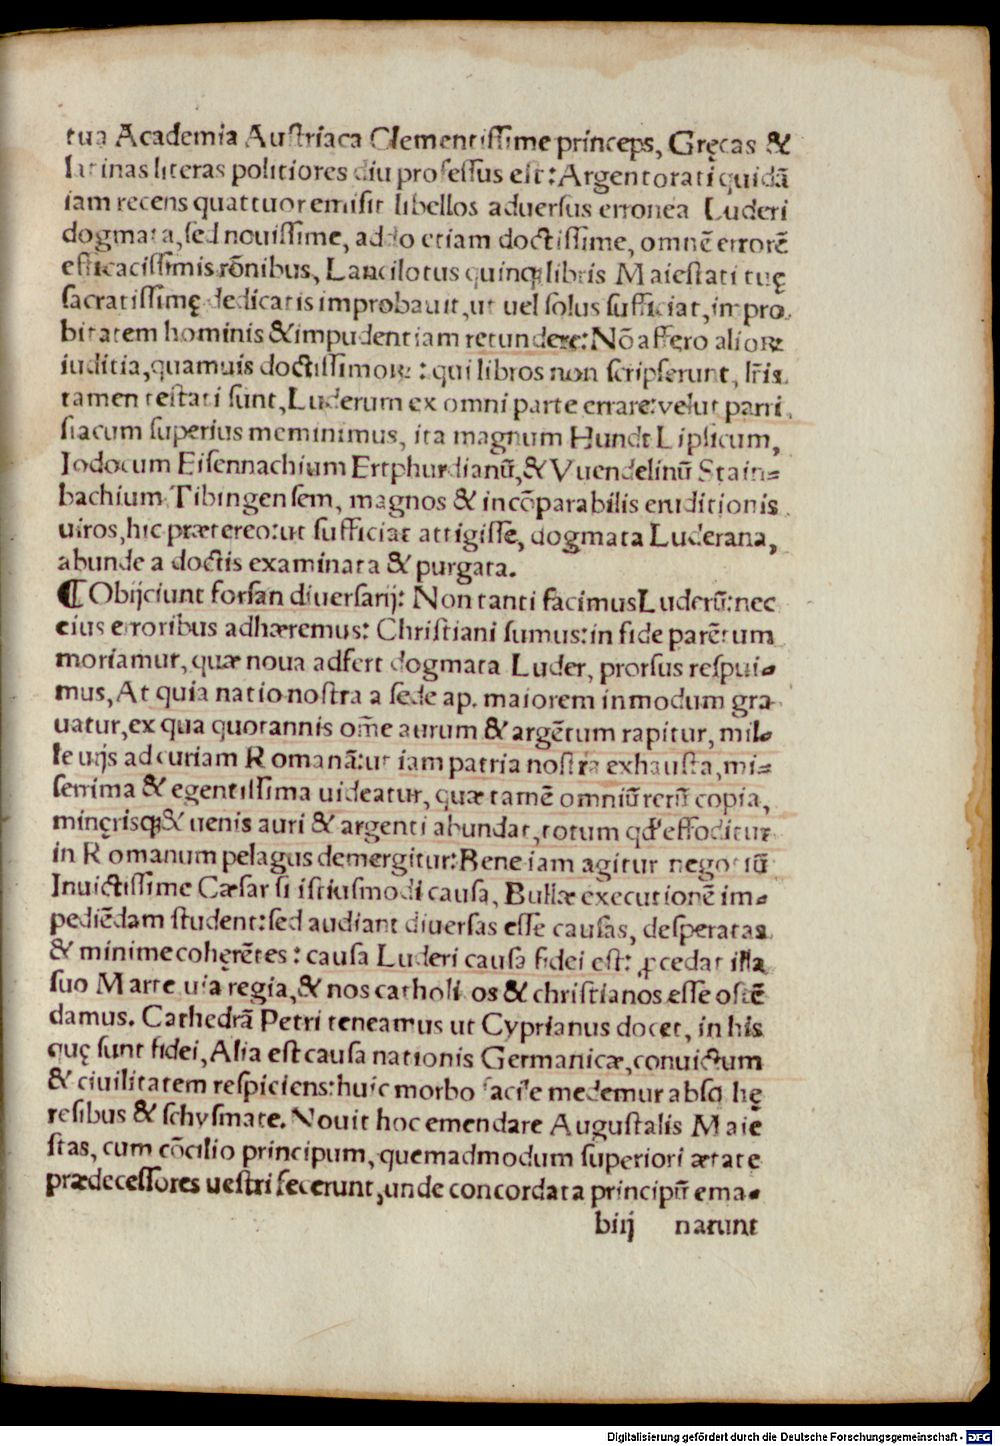 tua Academia Austriaca Clementissime princeps, Gręcas &
latinas literas politiores diu professus est: Argentorati quidã
iam recens quattuor emisit libellos aduersus erronea Luderi
dogmata, sed nouissime, addo etiam doctissime, omnẽ errorẽ
efficacissimis rõnibus, Lancilotus quinqꝫ libris Maiestati tuę
sacratissimę dedicatis improbauit, ut uel solus sufficiat, impro
bitatem hominis & impudentiam retundere: Nõ affero alioꝝ
iuditia, quamuis doctissimoꝝ: qui libros non scripserunt, lr̃is
tamen testati sunt, Luderum ex omni parte errare: velut parri
siacum superius meminimus, ita magnum Hundt Lipsicum,
Jodocum Eisennachium Ertphurdianũ, & Vuendelinũ Stain=
bachium Tibingensem, magnos & incõparabilis eruditionis
uiros, hic prætereo: ut sufficiat attigisse, dogmata Luderana,
abunde a doctis examinata & purgata.
¶ Obijciunt forsan diuersarij: Non tanti facimus Luderũ: nec
eius erroribus adhæremus: Christiani sumus: in fide parẽtum
moriamur, quæ noua adfert dogmata Luder, prorsus respui-
mus, At quia natio nostra a sede ap. maiorem in modum gra
uatur, ex qua quotannis om̃e aurum & argẽtum rapitur, mil-
le uijs ad curiam Romanã: ut iam patria nostra exhausta, mi=
serrima & egentissima uideatur, quæ tamẽ omniũ rerũ copia,
minęrisqꝫ & uenis auri & argenti abundat, totum qđ effoditur
in Romanum pelagus demergitur: Bene iam agitur negotiũ
Inuictissime Cæsar si istiusmodi causa, Bullæ executionẽ im-
pediẽdam student: sed audiant diuersas esse causas, desperatas
& minime coherẽtes: causa Luderi causa fidei est: ꝓcedat illa
suo Marte uia regia, & nos catholicos & christianos esse ostẽ
damus. Cathedrã Petri teneamus ut Cyprianus docet, in his
quę sunt fidei, Alia est causa nationis Germanicæ, conuictum
& ciuilitatem respiciens: huic morbo facile medemur absqꝫ hę
resibus & schysmate. Nouit hoc emendare Augustalis Maie
stas, cum cõcilio principum, quemadmodum superiori ætate
prædecessores uestri fecerunt, unde concordata principũ ema-
biij narunt
Digitalisierung gefördert durch die Deutsche Forschungsgemeinschaft - DFG